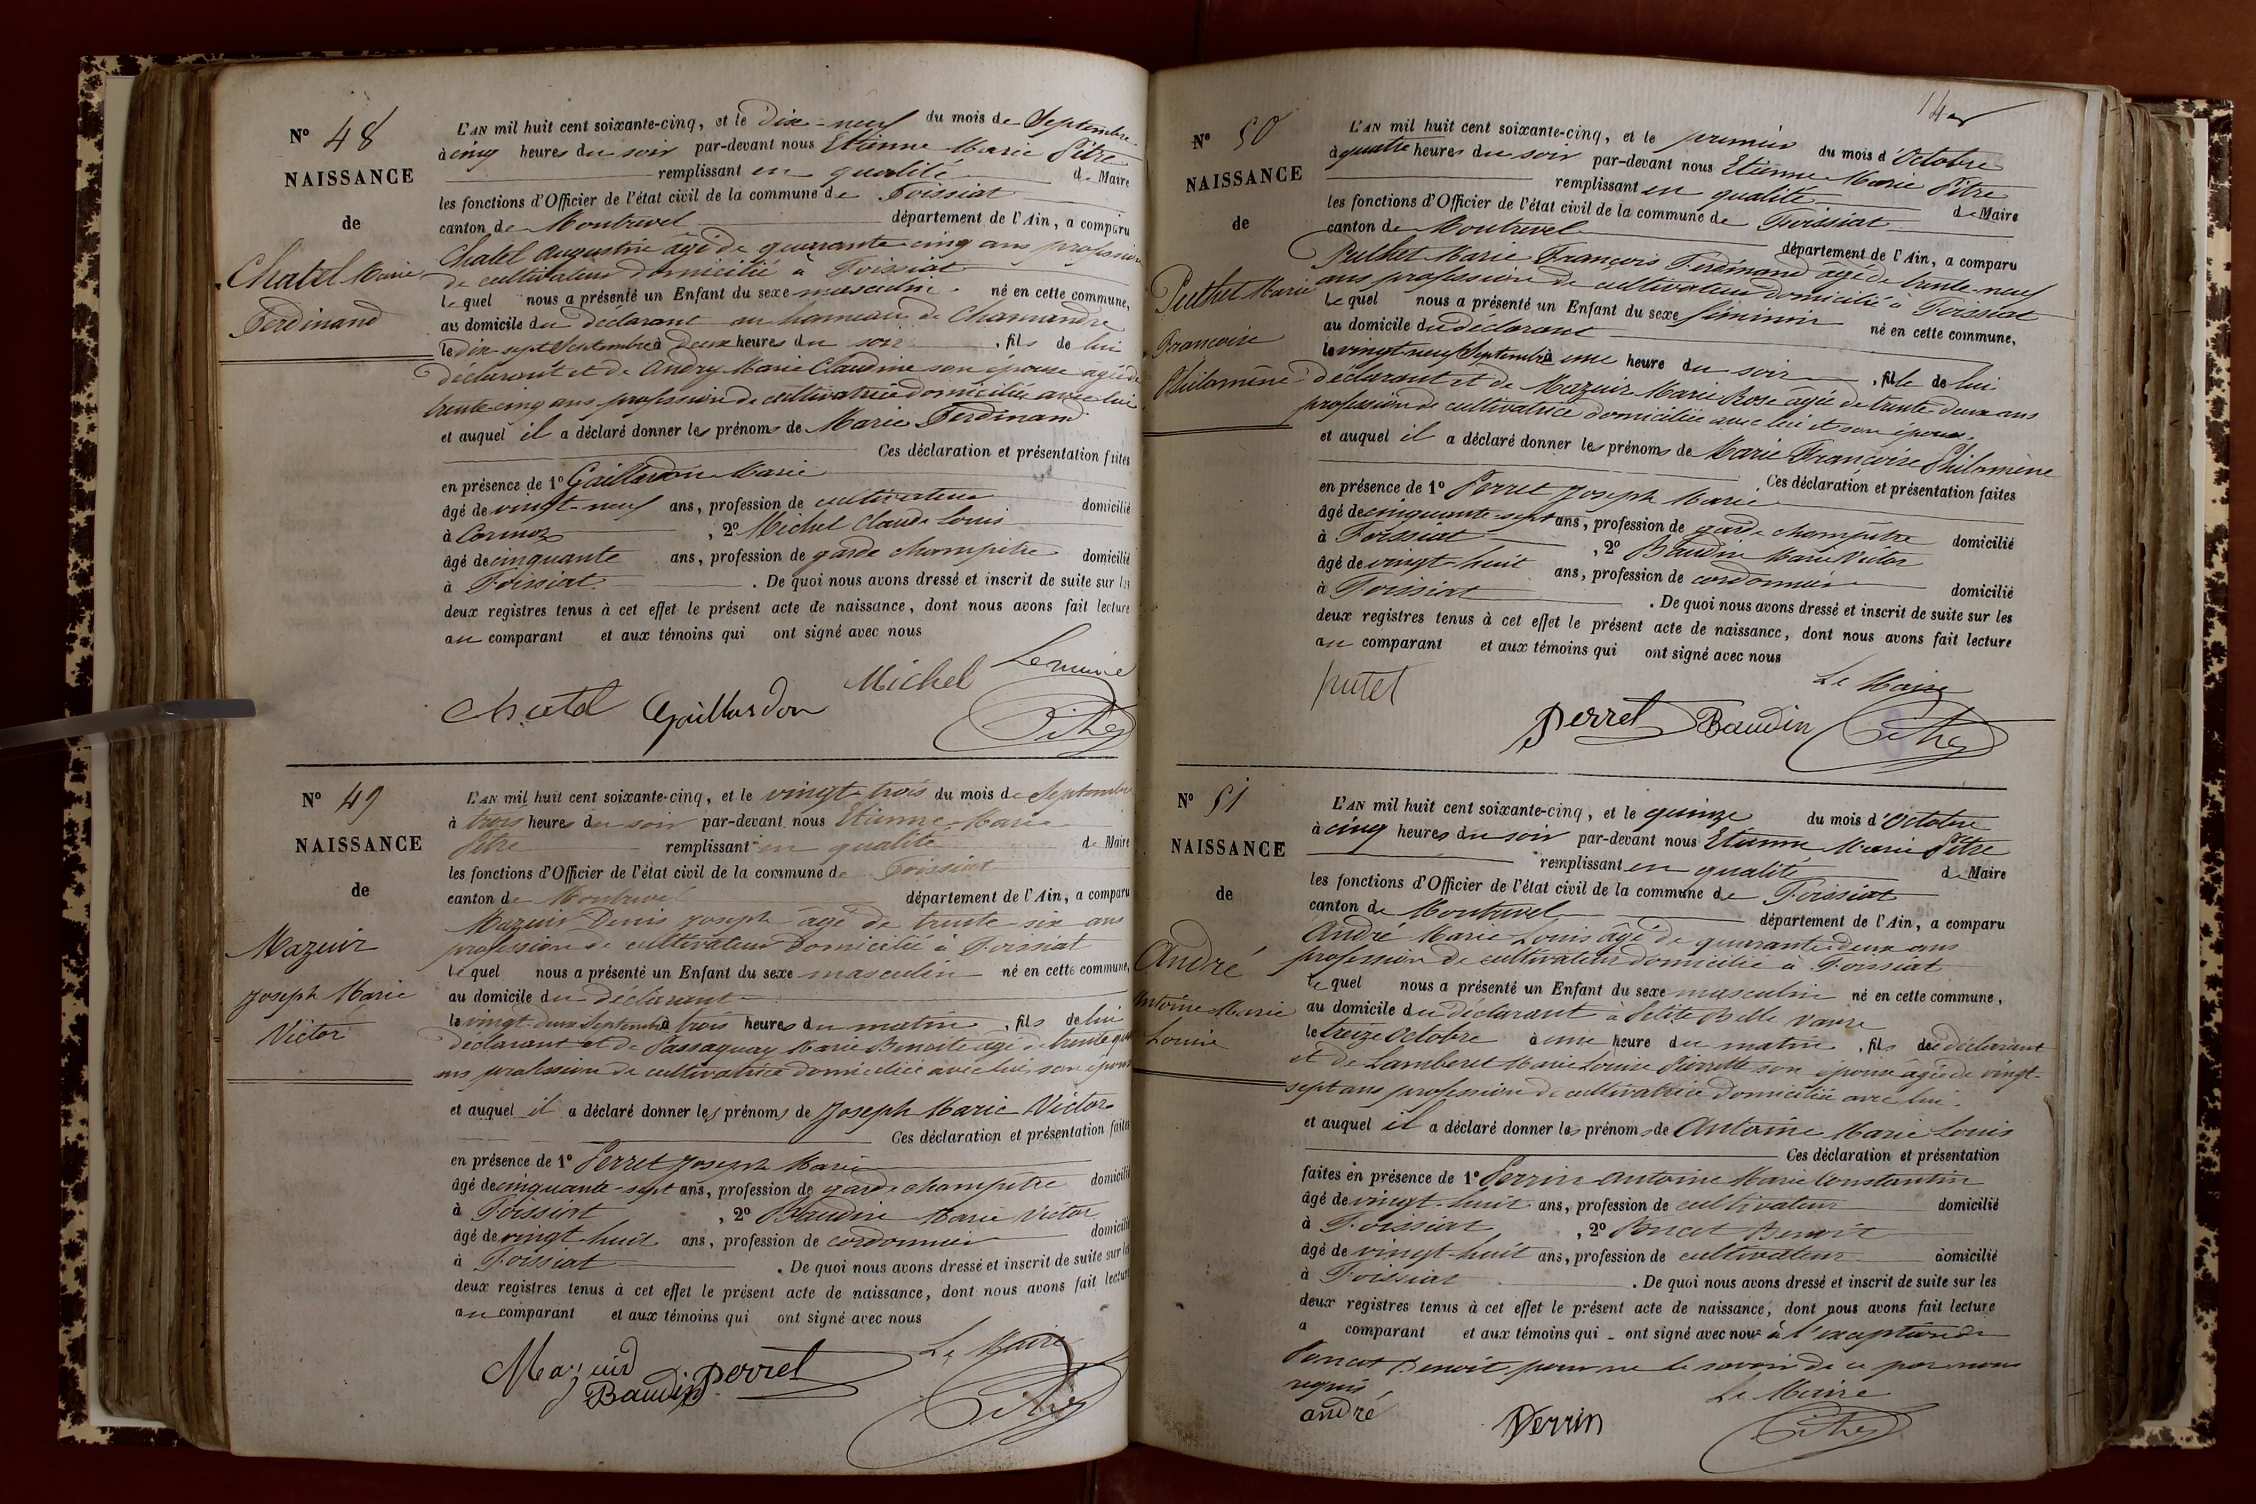 N° 48
NAISSANCE
de
Chatel Marie
Ferdinand
L'AN mil huit cent soixante-cinq, et le Dix-neuf du mois de Septembre
à cinq heures du soir par-devant nous Etienne Marie Pitre
remplissant en qualité de Maire
les fonctions d'Officier de l'état civil de la commune de Foissiat
canton de Montrevel département de l'Ain, a comparu
Chatel Augustin âgé de quarante cinq ans profession
de cultivateur domicilié à Foissiat
lequel nous a présenté un Enfant du sexe masculin né en cette commune,
au domicile du déclarant au hameau de Chamandre
le dix-sept Septembre à deux heures du soir, fils de lui
déclarant et de Andry Marie Claudine son épouse agée de
trente cinq ans profession de cultivatrice domiciliée avec lui
et auquel il a déclaré donner les prénoms de Marie Ferdinand
Ces déclaration et présentation faites
en présence de 1° Gaillardon Marie
âgé de vingt-neuf ans, profession de cultivateur domicilié
à Cormoz, 2° Michel Claude Louis
âgé de cinquante ans, profession de garde champêtre domicilié
à Foissiat. De quoi nous avons dressé et inscrit de suite sur les
deux registres tenus à cet effet le présent acte de naissance, dont nous avons fait lecture
au comparant et aux témoins qui ont signé avec nous
Le maire
Chatel Gaillardon Michel Pitre
N° 49
NAISSANCE
de
Mazuir
Joseph Marie
Victor
L'AN mil huit cent soixante-cinq, et le vingt-trois du mois de Septembre
à trois heures du soir par-devant nous Etienne Marie
Pitre remplissant en qualité de Maire
les fonctions d'Officier de l'état civil de la commune de Foissiat
canton de Montrevel département de l'Ain, a comparu
Mazuir Denis Joseph âgé de trente-six ans
profession de cultivateur domicilié à Foissiat
lequel nous a présenté un Enfant du sexe masculin né en cette commune,
au domicile du déclarant
le vingt-deux Septembre à trois heures du matin, fils de lui
déclarant et de Passaquay Marie Benoite agé de trente
ans profession de cultivatrice domiciliée avec lui, son épouse
et auquel il a déclaré donner les prénoms de Joseph Marie Victor
Ces déclaration et présentation faites
en présence de 1° Perret Joseph Marie
âgé de cinquante-sept ans, profession de garde champêtre domicilié
à Foissiat, 2° Baudin Marie Victor
âgé de vingt-huit ans, profession de cordonnier domicilié
à Foissiat. De quoi nous avons dressé et inscrit de suite sur les
deux registres tenus à cet effet le présent acte de naissance, dont nous avons fait lecture
au comparant et aux témoins qui ont signé avec nous
Le Maire
Mazuir Perret
Baudin Pitre
N° 50
NAISSANCE
de
Puthet Marie
Francoise
Philomène
L'AN mil huit cent soixante-cinq, et le premier du mois d'Octobre
à quatre heures du soir par-devant nous Etienne Marie Pitre
remplissant en qualité de Maire
les fonctions d'Officier de l'état civil de la commune de Foissiat
canton de Montrevel département de l'Ain, a comparu
Puthet Marie François Ferdinand âgé de trente-neuf
ans profession de cultivateur domicilié à Foissiat
lequel nous a présenté un Enfant du sexe féminin né en cette commune,
au domicile du déclarant
le vingt-neuf Septembre à une heure du soir, fille de lui
déclarant et de Mazuir Marie Rose âgée de trente deux ans
profession de cultivatrice domiciliée avec lui et son épouse
et auquel il a déclaré donner les prénoms de Marie Francoise Philomène
Ces déclaration et présentation faites
en présence de 1° Perret Joseph Marie
âgé de cinquante-sept ans, profession de garde champêtre domicilié
à Foissiat, 2° Baudin Marie Victor
âgé de vingt-huit ans, profession de cordonnier domicilié
à Foissiat. De quoi nous avons dressé et inscrit de suite sur les
deux registres tenus à cet effet le présent acte de naissance, dont nous avons fait lecture
au comparant et aux témoins qui ont signé avec nous
Le Maire
putet Perret Baudin Pitre
N° 51
NAISSANCE
de
André
Antoine Marie
Louis
L'AN mil huit cent soixante-cinq, et le quinze du mois d'Octobre
à cinq heures du soir par-devant nous Etienne Marie Pitre
remplissant en qualité de Maire
les fonctions d'Officier de l'état civil de la commune de Foissiat
canton de Montrevel département de l'Ain, a comparu
André Marie Louis âgé de quarante deux ans
profession de cultivateur domicilié à Foissiat
lequel nous a présenté un Enfant du sexe masculin né en cette commune,
au domicile du déclarant à Petite Belle Vavre
le treize Octobre à une heure du matin, fils de déclarant
et de Lamberet Marie Louise Pierrette son épouse âgée de vingt-
sept ans profession de cultivatrice domiciliée avec lui.
et auquel il a déclaré donner les prénoms de Antoine Marie Louis
Ces déclaration et présentation
faites en présence de 1° Perrin Antoine Marie Constantin
âgé de vingt-huit ans, profession de cultivateur domicilié
à Foissiat, 2° Benoît
âgé de vingt-huit ans, profession de cultivateur domicilié
à Foissiat. De quoi nous avons dressé et inscrit de suite sur les
deux registres tenus à cet effet le présent acte de naissance, dont nous avons fait lecture
a comparant et aux témoins qui ont signé avec nous à l'exception de
Benoît pour ne le savoir de ce par nous
requis
Le Maire
andré Perrin Pitre